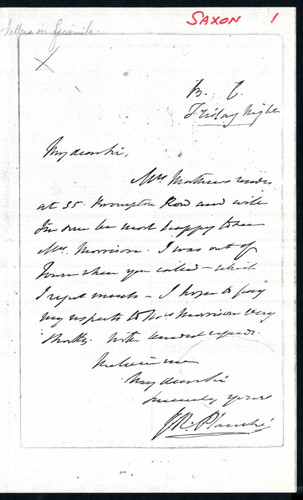 SAXON 1
Letters in facsimile
B. C.
Friday Night
My dear Sir,
Mrs. Mathews resides
at 35. Brompton Row and will
I'm sure be most happy to see
Mrs. Morrison. I was out of
Town when you called – which
I regret much – I hope to pay
my respects to Mrs. Morrison very
shortly. With kindest regards.
Believe me
My dear Sir
Sincerely yours
J R Planché